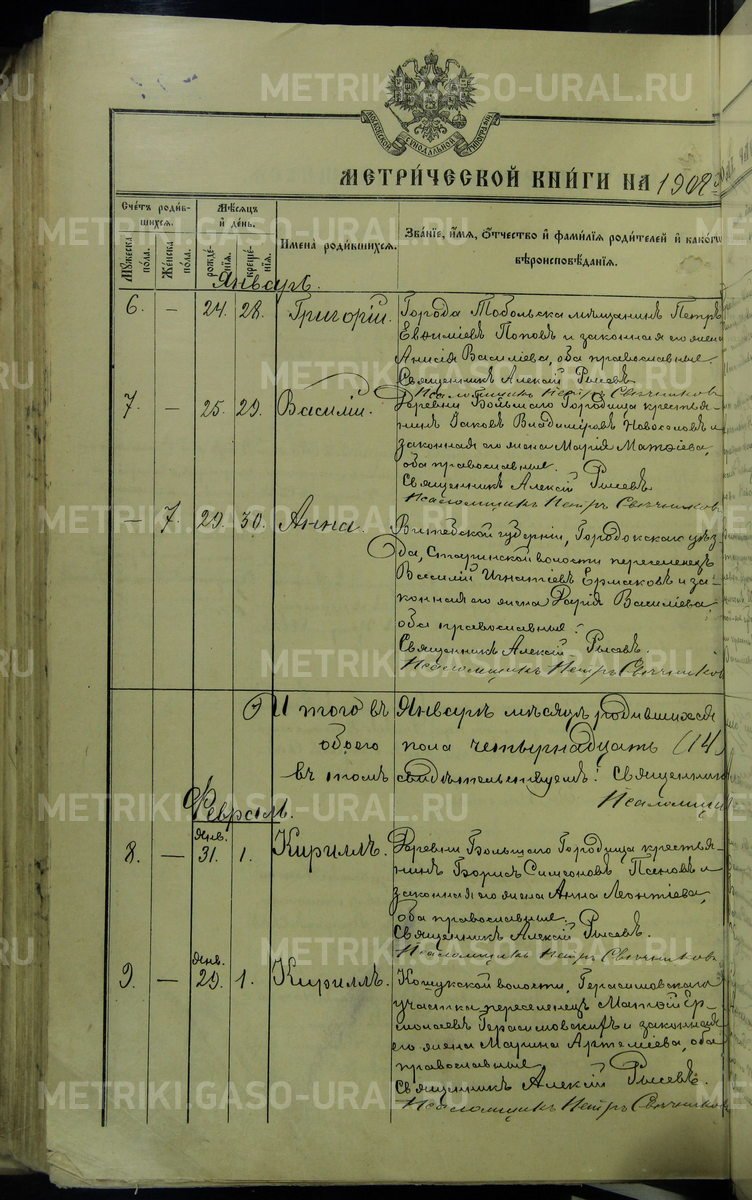 МЕТРИ́ЧЕСКОЙ КНИ́ГИ НА 1902
Счетъ роди́в-
шихся.
Му́жеска по́ла.
Же́нска по́ла.
Мѣсяцъ и де́нь.
рожде́нїя.
креще́нїя.
Имена̀ роди́вшихся.
Зва́нїе, и́мя, о́тчество и фами́лїя роди́телей и како́гѡ
вѣроисповѣ́данїя.
Январь.
6. — 24. 28. Григорій.
Города Тобольска мѣщанинъ Петръ
Евѳиміевъ Поповъ и законная его жена
Анисія Василіева, оба православные.
Священникъ Алексій Рысевъ.
Псаломщикъ Петръ Свѣчников
7. — 25. 29. Василій.
Деревни Большаго Городища крестья-
нинъ Іаковъ Владиміровъ Новоселовъ и
законная его жена Марія Матѳіева,
оба православные.
Священникъ Алексій Рысевъ.
Псаломщикъ Петръ Свѣчников
— 7. 29. 30. Анна.
Витебской губерніи, Городокскаго уѣз-
да, волости переселенецъ
Василій Игнатіевъ Ермаковъ и за-
конная его жена Дарія Василіева,
оба православные.
Священникъ Алексій Рысевъ.
Псаломщикъ Петръ Свѣчников
Итого въ Январѣ мѣсяцѣ родившихся
обоего пола четырнадцать (14)
въ томъ свидѣтельствуемъ: Священник
Псаломщи
Февраль.
8. — Янв. 31. 1. Кириллъ.
Деревни Большаго Городища крестья-
нинъ Борисъ Симеоновъ и
законная его жена Анна Леонтіева,
оба православные.
Священникъ Алексій Рысевъ.
Псаломщикъ Петръ Свѣчников
9. — Янв. 29. 1. Кириллъ.
Кошукской волости, Герасимовскаго
участка переселенецъ Матѳій Ер-
молаевъ Герасимовскій и законная
его жена Марина Артеміева, оба
православные
Священникъ Алексій Рысевъ.
Псаломщикъ Петръ Свѣчников
METRIKI.GASO-URAL.RU